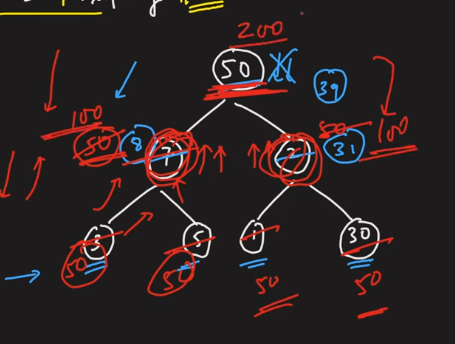 200
50
39
100
50 8 7
2 50 31 100
3 5 1 30
50 50 50 50